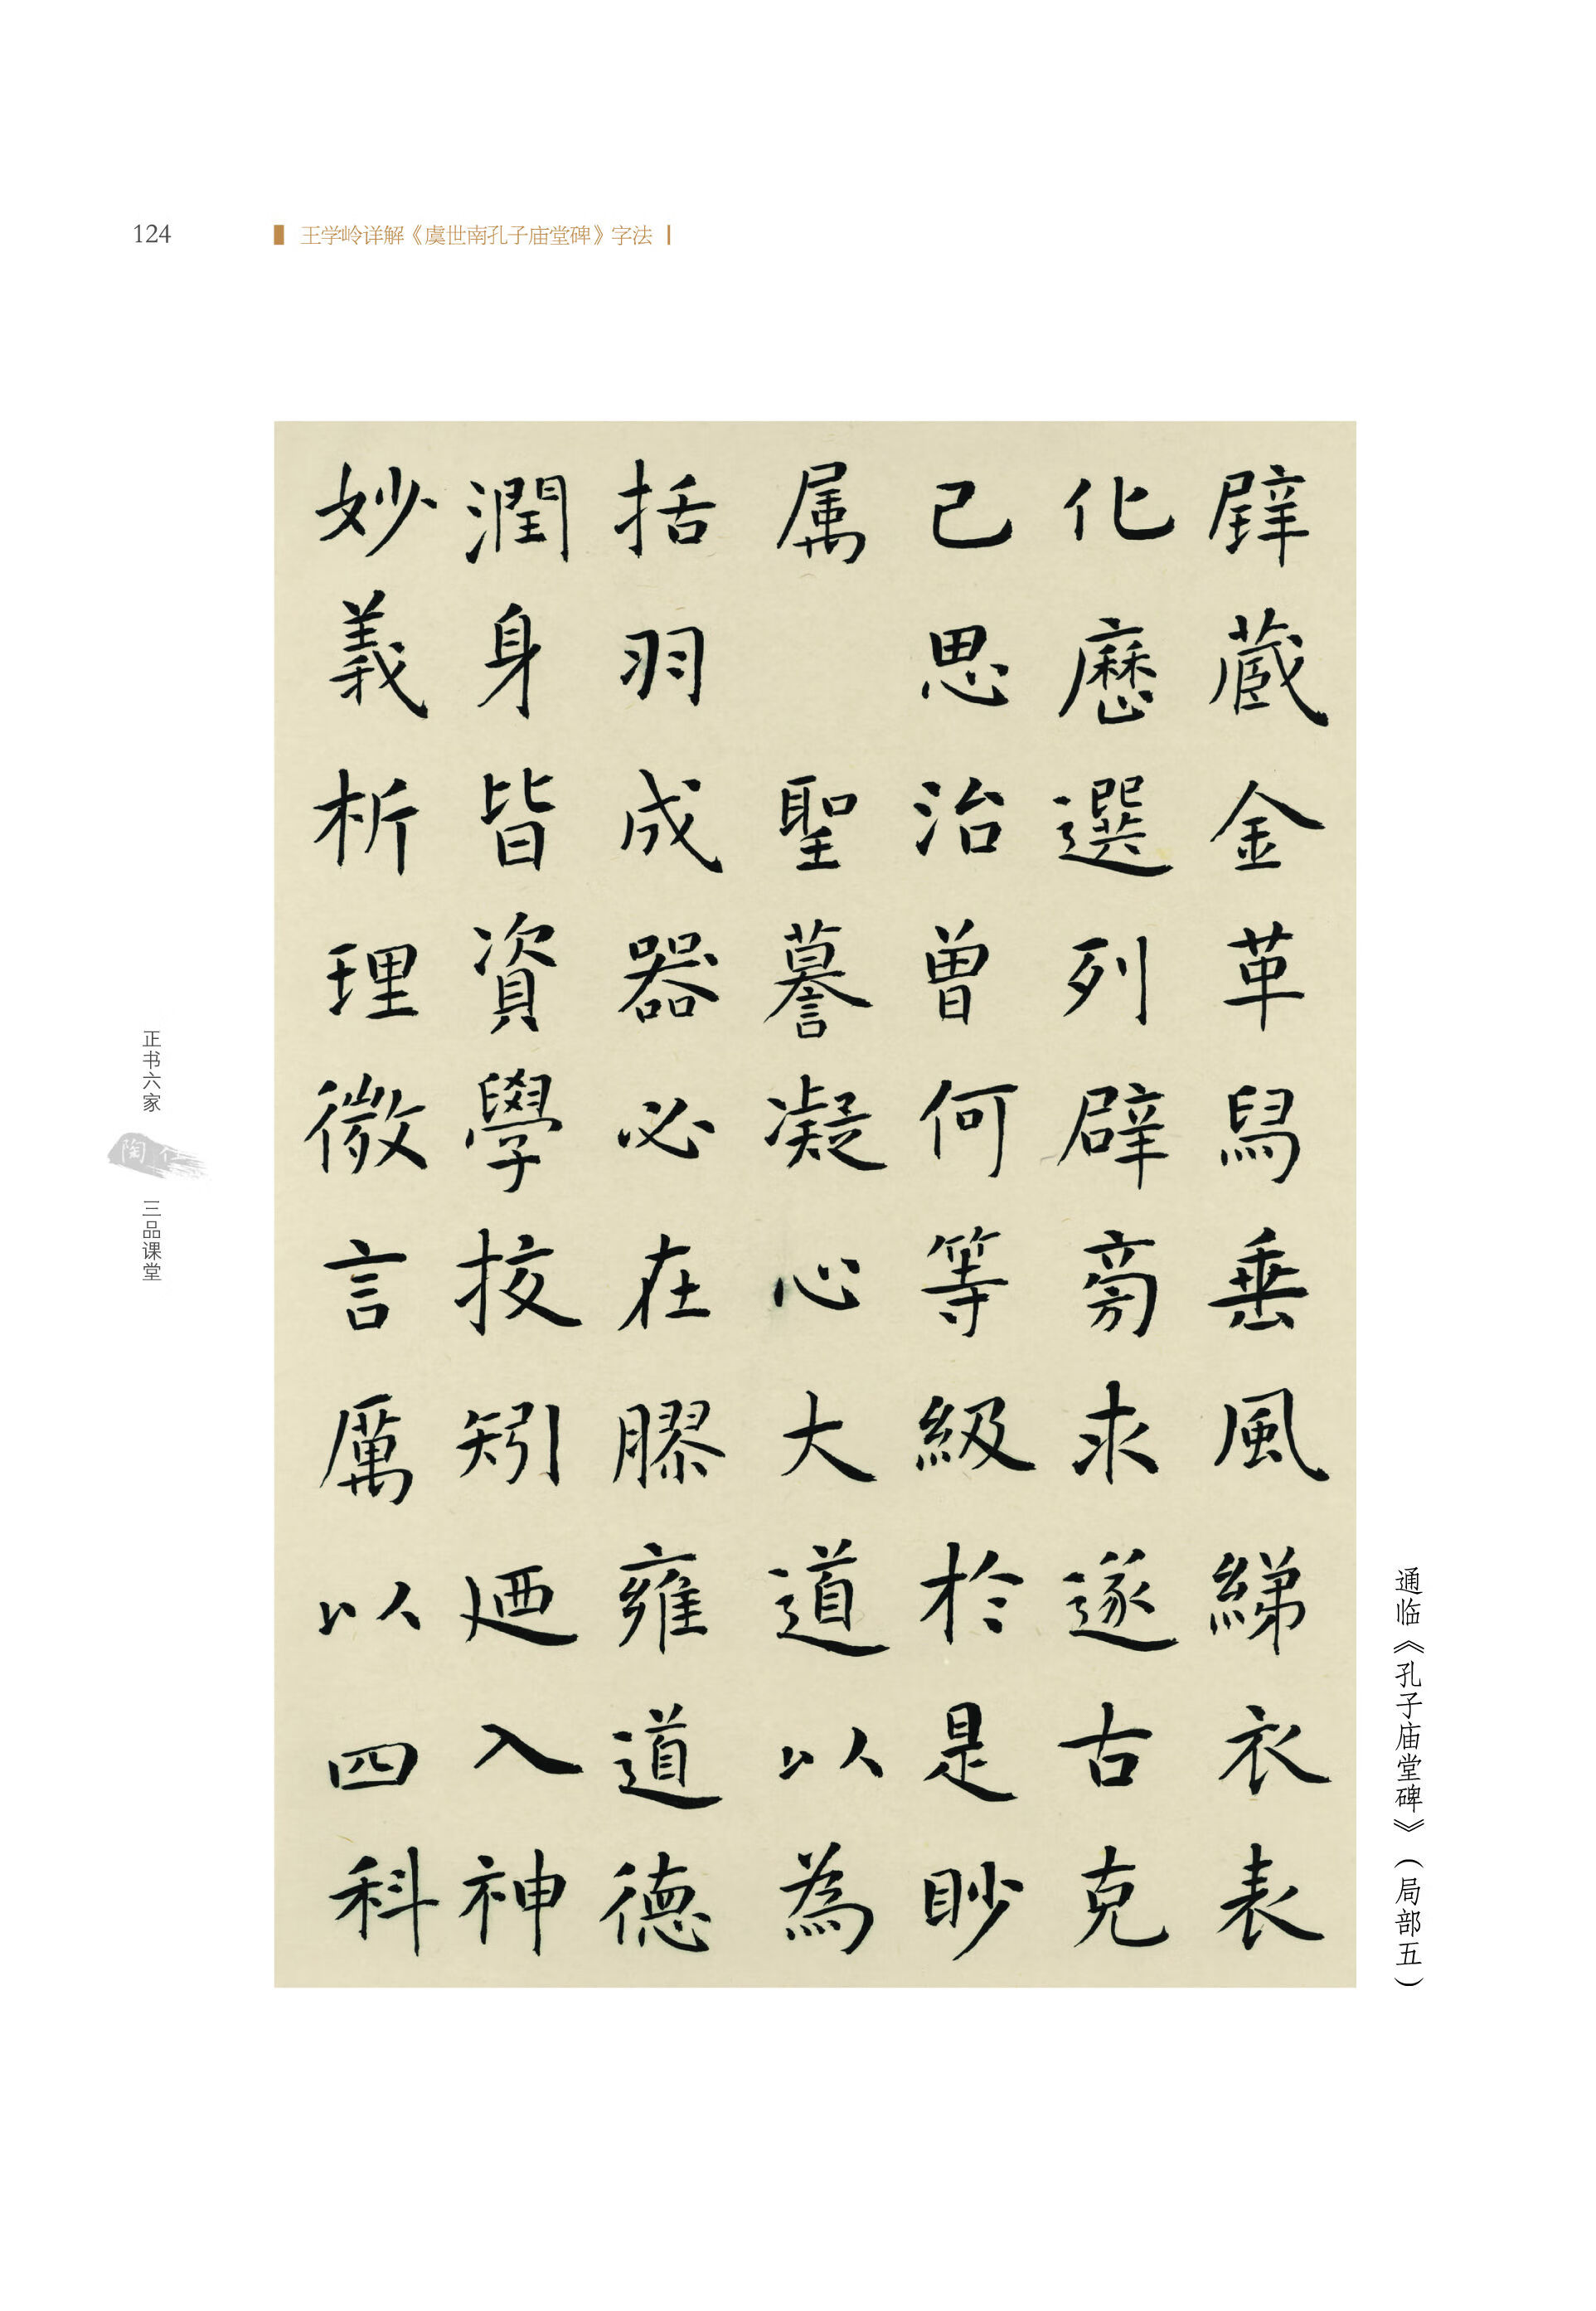 124
王学岭详解《虞世南孔子庙堂碑》字法
辟藏金革舄垂風綈衣表
化歷選列辟旁求遂古克
己思治曾何等級於是眇
属聖謩凝心大道以為
括羽成器必在膠雍道德
潤身皆資學挍矧迺入神
妙義析理微言厲以四科
通临《孔子庙堂碑》（局部五）
正书六家
陶
三品课堂